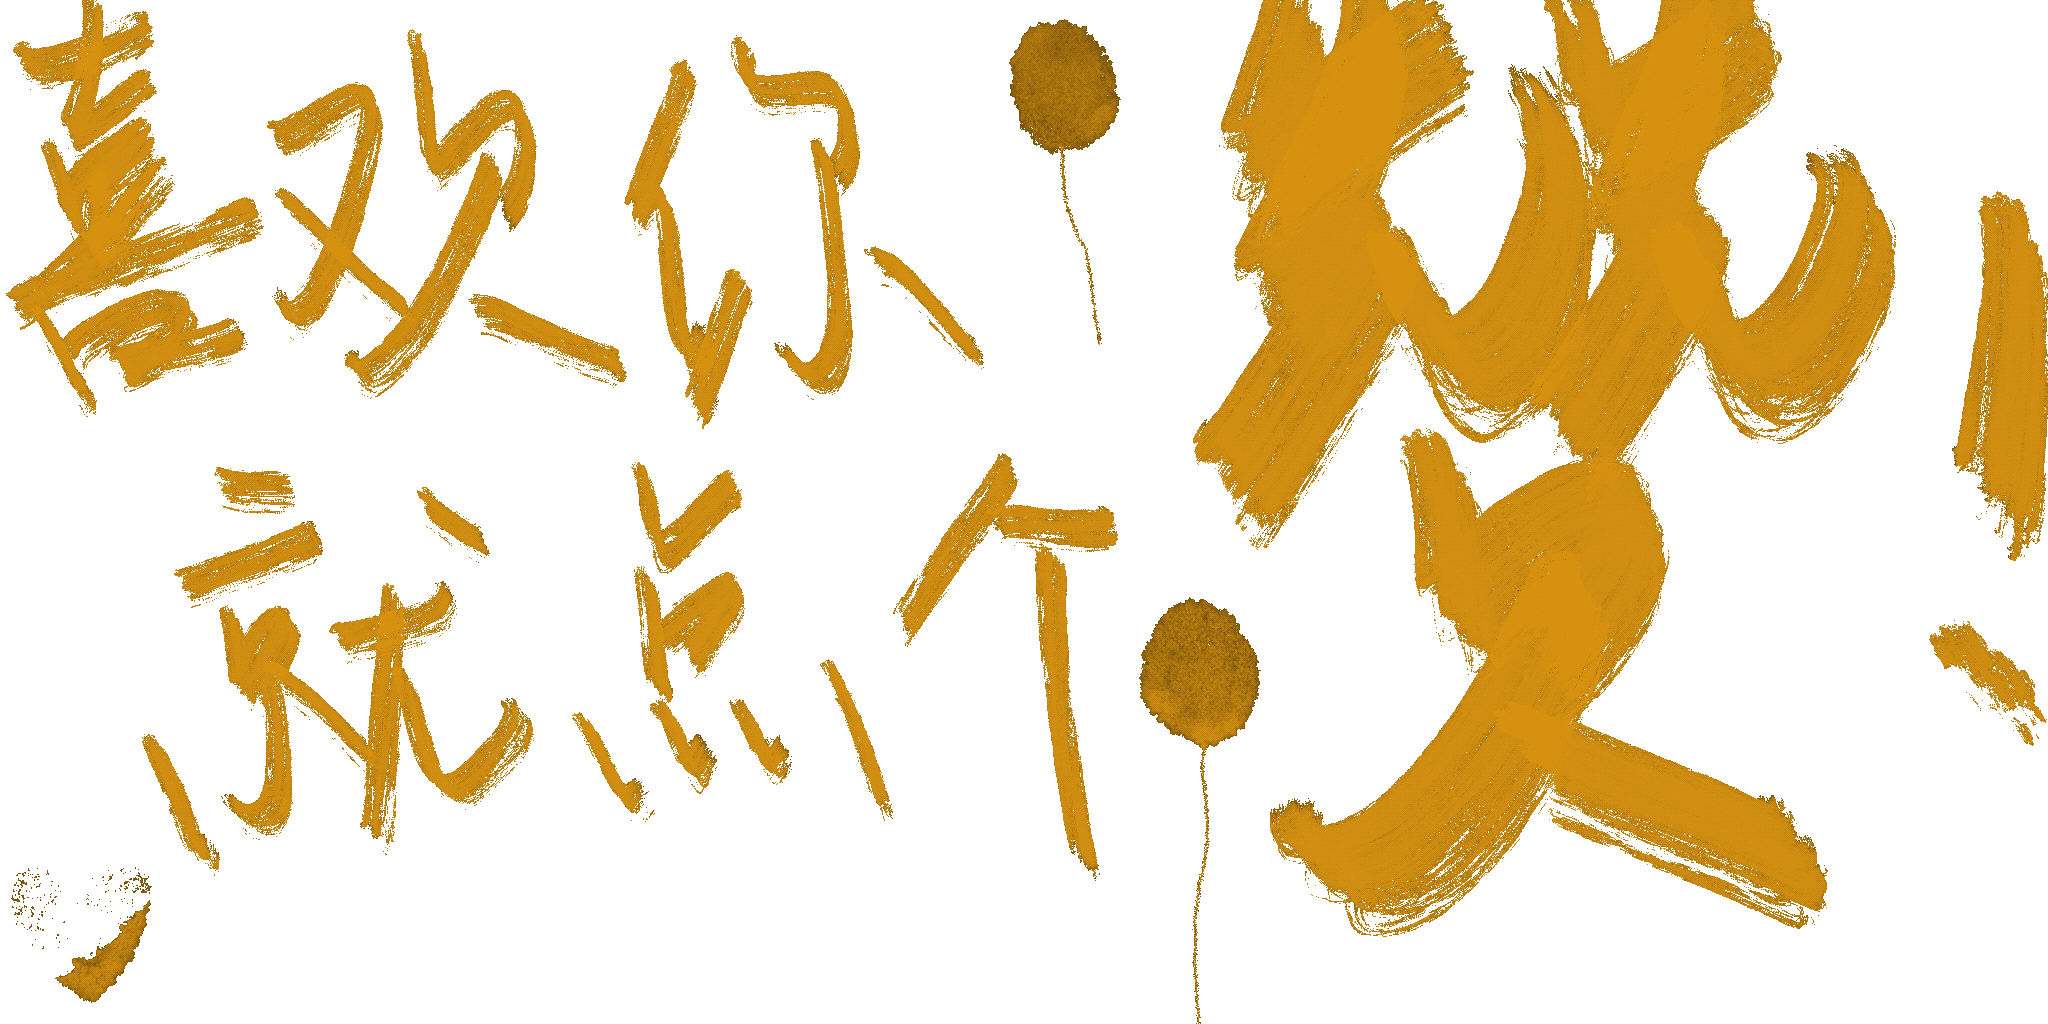 喜欢你
就点个
赞！